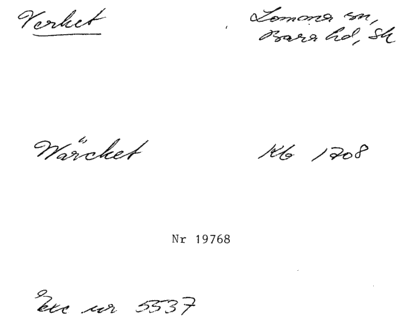 Verket
Lomma sn,
Bara hd, Sk
Wärcket
Kb 1708
Nr 19768
Exc nr 5537